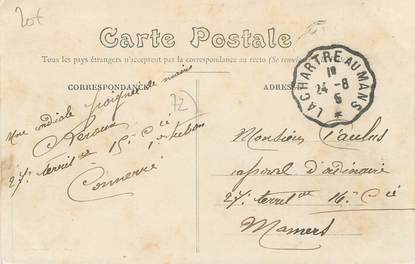 20t
Carte Postale
Tous les pays étrangers n'acceptent pas la correspondance au recto (Se
CORRESPONDANCE
ADRESSE
LA CHARTRE AU MANS
1e
24 -8
6
72
Une cordiale poignée de main
27e territ al 15e Cie
Connerré
Monsieur Paulus
caporal d'ordinaire
27e territ al 16e Cie
Mamers